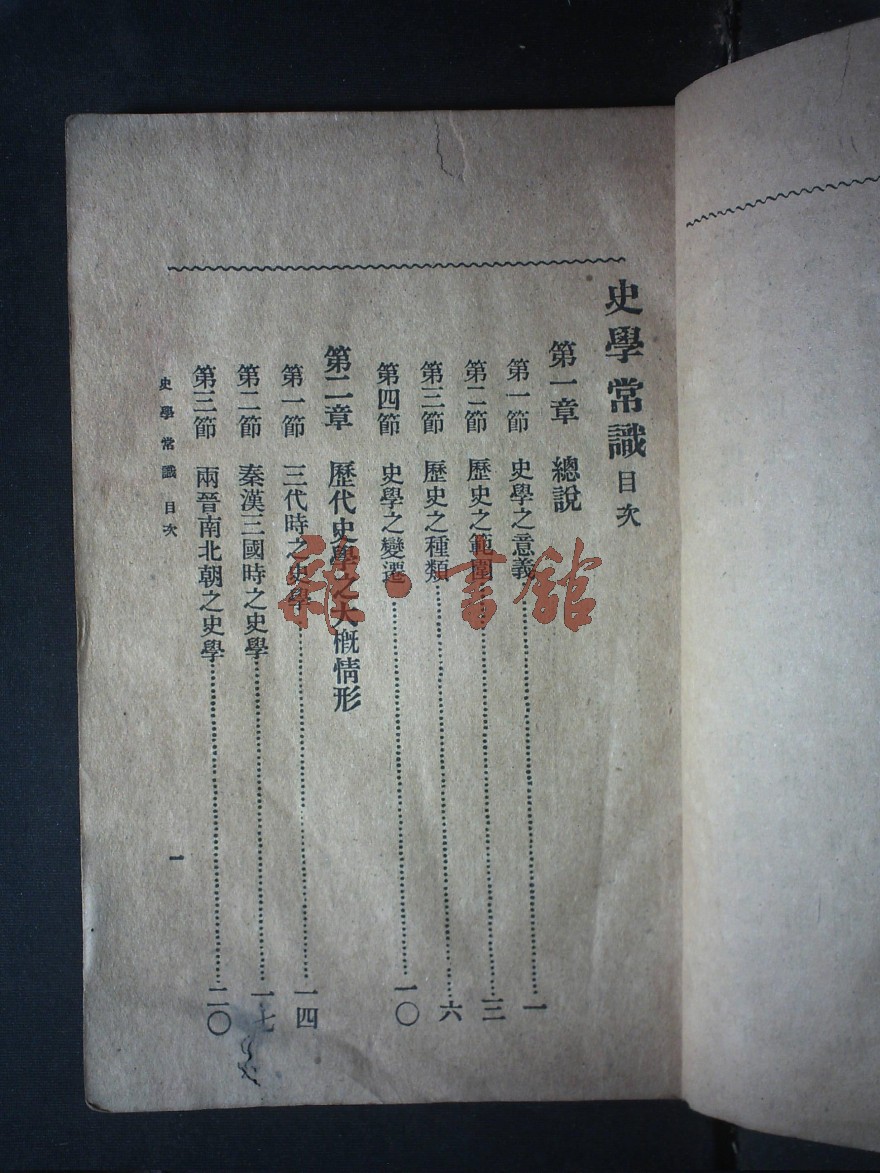 史學常識 目次
第一章 總說
第一節 史學之意義……一
第二節 歷史之範圍……三
第三節 歷史之種類……六
第四節 史學之變遷……一〇
第二章 歷代史學之大概情形
第一節 三代時之史學……一四
第二節 秦漢三國時之史學……一七
第三節 兩晉南北朝之史學……二〇
史學常識 目次
一
雜·書館